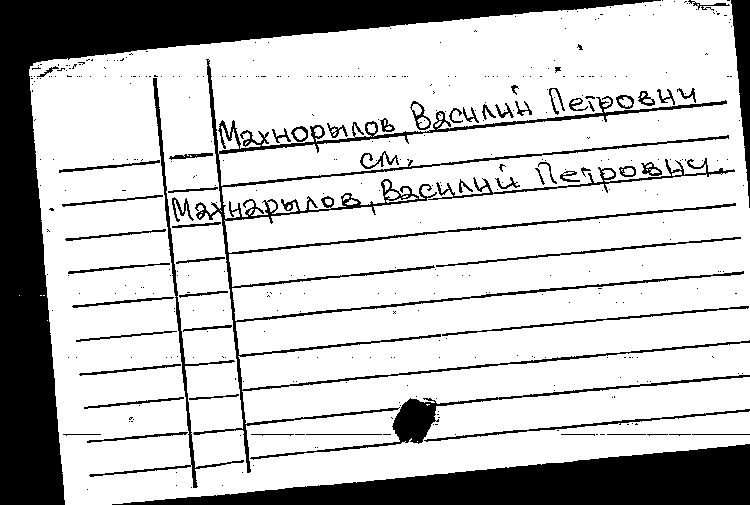 Махнорылов, Василий Петрович
см.
Махнарылов, Василий Петрович.